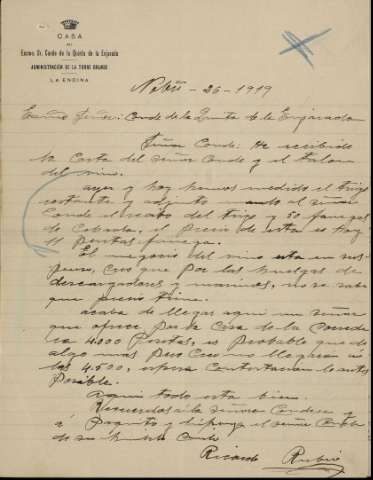 CASA
DEL
Excmo. Sr. Conde de la Quinta de la Enjarada
ADMINISTRACIÓN DE LA TORRE
LA ENCINA
26 - 1919
Señor: Conde de la Quinta de la Enjarada
Señor Conde: He recibido
la Carta del Señor Conde y el talon
del vino.
ayer y hoy hemos medido el trigo
restante y adjunto mando al señor
Conde el del trigo y 50 fanegas
de Cebada, el precio de esta es hoy
11 pesetas fanega.
El negocio del vino esta en sus-
penso, creo que por las huelgas de
descargadores y marinos, no se sabe
que precio tiene.
acaba de llegar aqui un señor
que ofrece por la Casa de la
4.000 Pesetas, es probable que de
algo mas pero Creo no llegaran a
las 4.500, espera Contestacion lo antes
posible.
Aqui todo esta bien.
Recuerdos á la señora Condesa y
á y disponga el señor Conde
de su
Ricardo Rubio